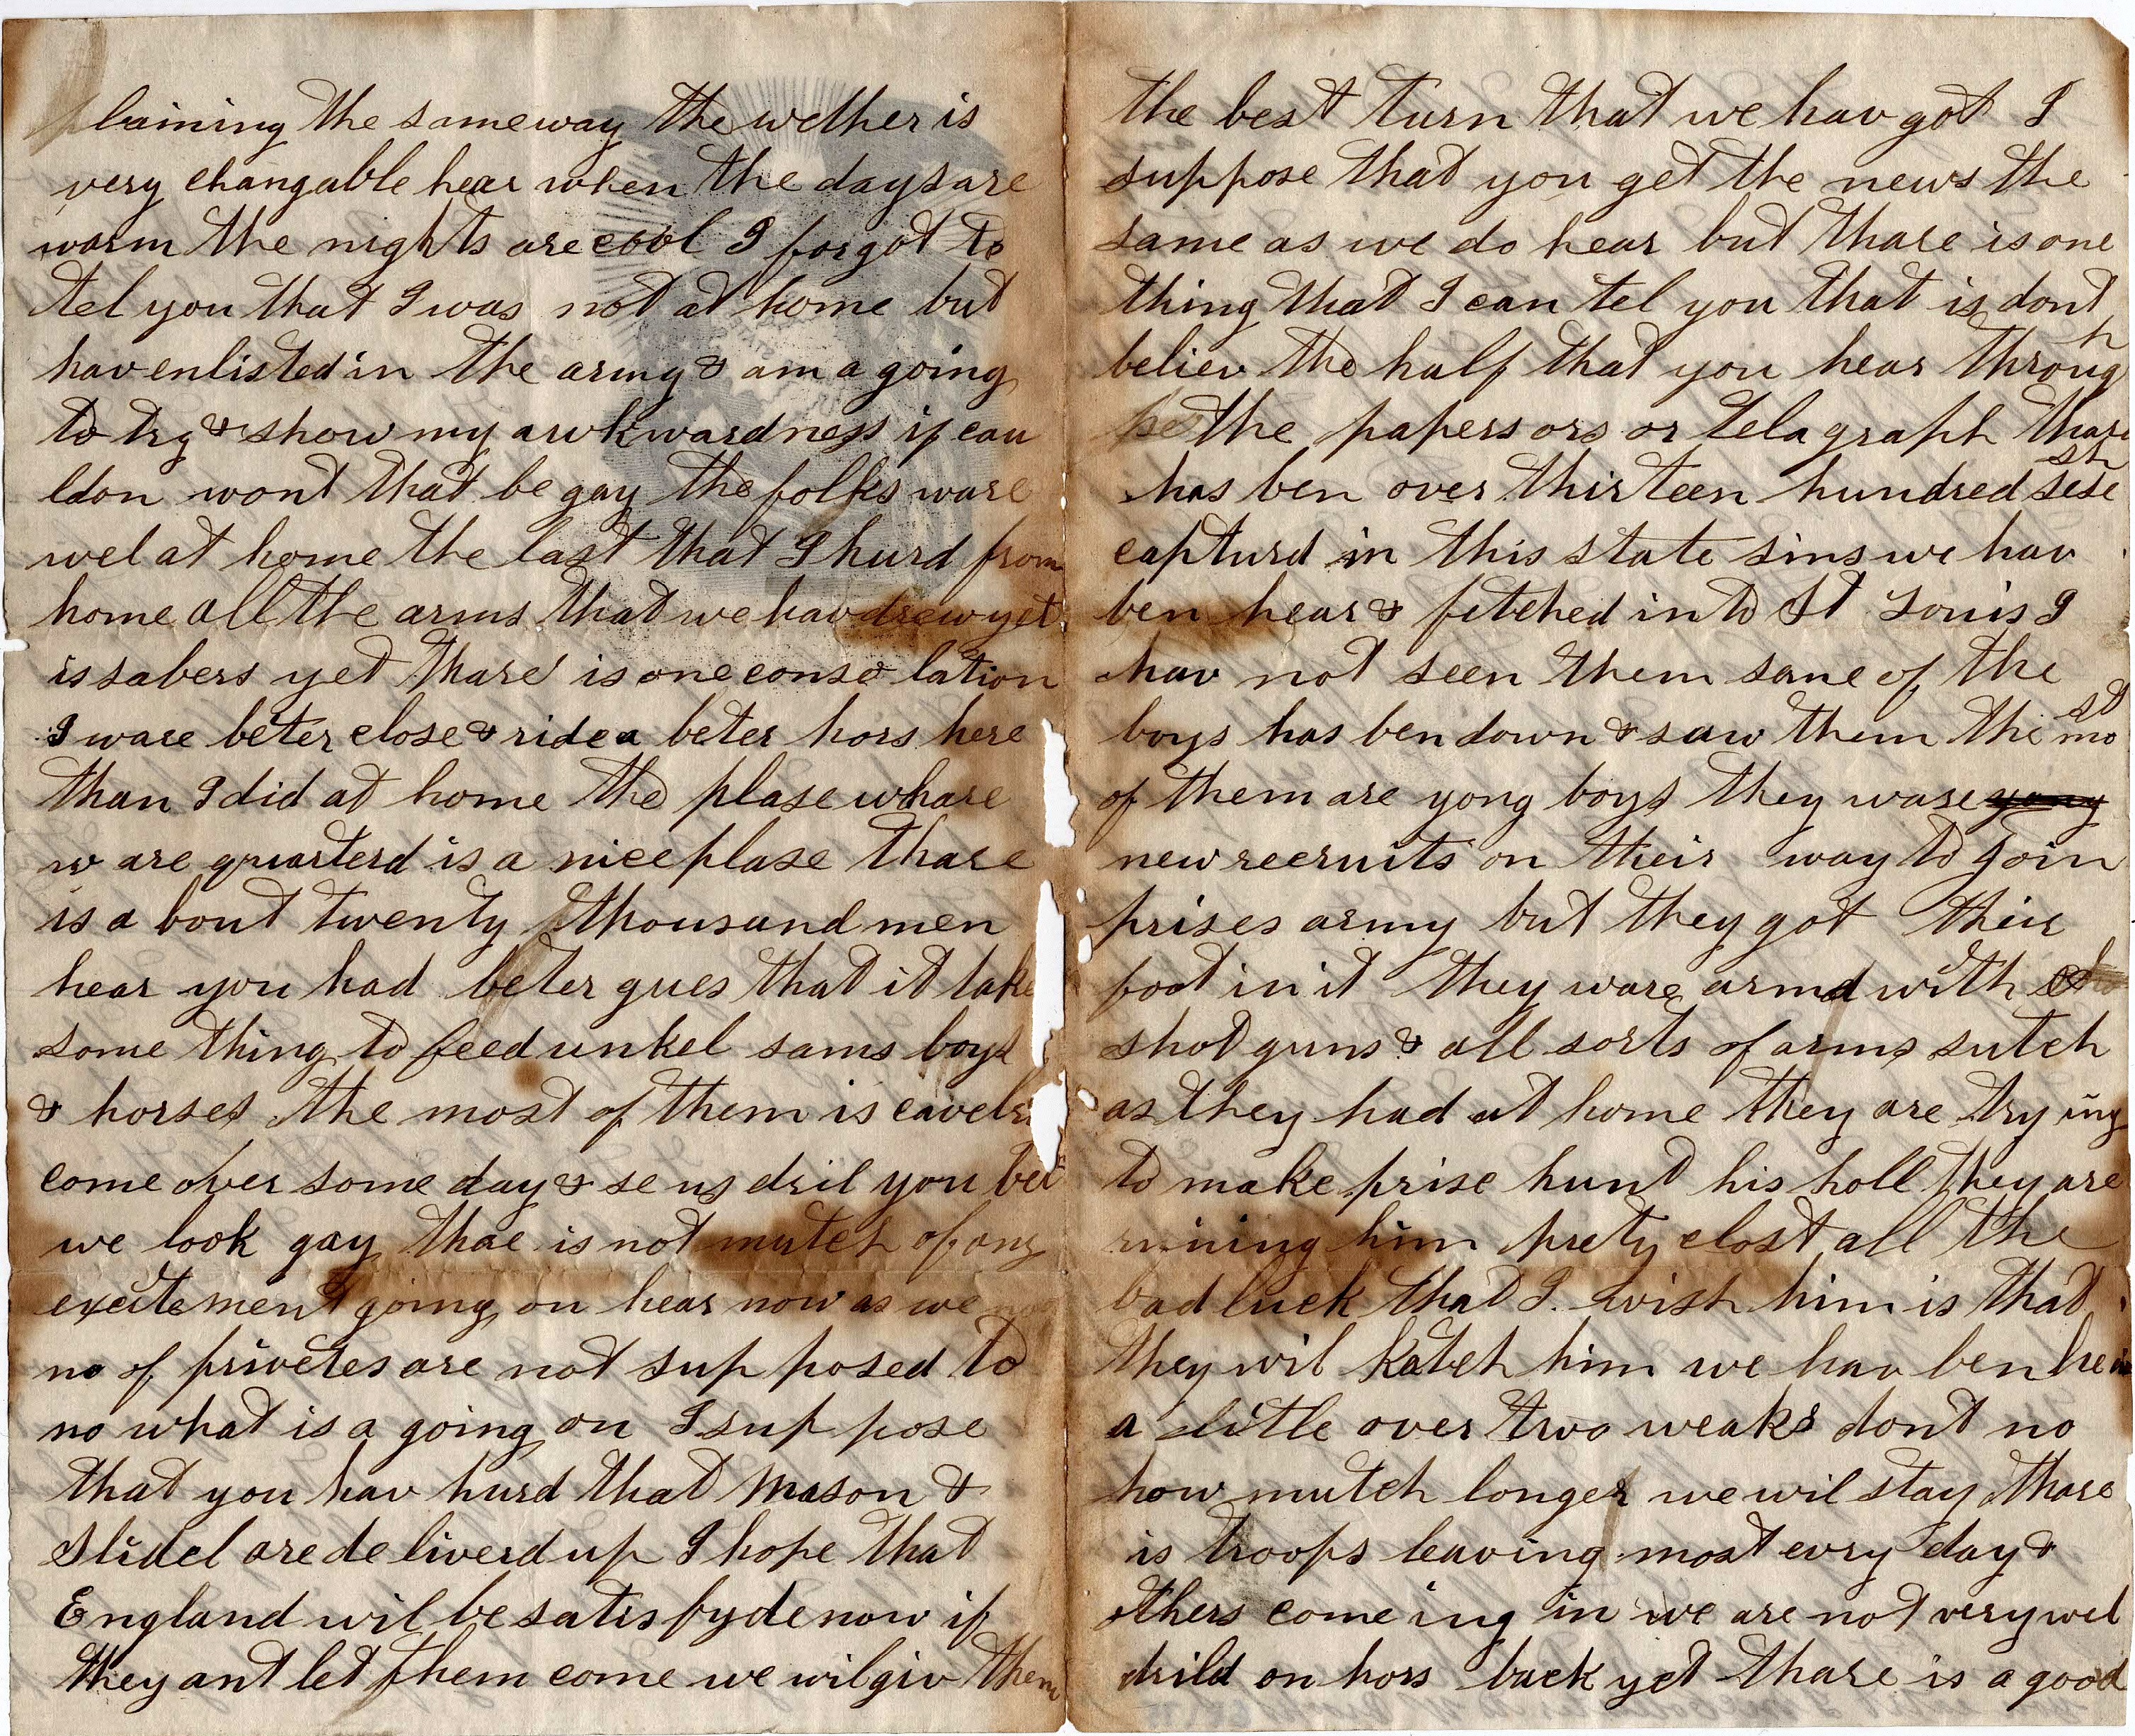 plaining the same way the wether is
very changable hear when the days are
warm the nights are cool I forgot to
tel you that I was not at home but
hav enlisted in the army & am a going
to try & show my awkwardness if cau
ldon wont that be gay the folks ware
wel at home the last that I hurd from
home all the arms that we hav drew yet
is sabers yet thare is one conso lation
I ware beter close & ride a beter hors here
than I did at home the plase whare
w are quarterd is a nice plase thare
is a bout twenty thousand men
hear you had beter gues that it take
some thing to feed unkel sams boys
& horses the most of them is cavelri
come over some day & se us dril you bet
we look gay thae is not mutch of any
excitement going on hear now as we
no of privetes are not sup posed to
no what is a going on I sup pose
that you hav hurd that Mason &
Slidel are de liverd up I hope that
England wil be satisfyde now if
they ant let them come we wil giv them
the best turn that we hav got I
suppose that you get the news the
same as we do hear but thare is one
thing that I can tel you that is dont
believ the half that you hear through
the papers ors or telagraph thare
has ben over thirteen hundred sesesh
capturd in this state sins we hav
ben hear & fetched in to St Louis I
hav not seen them sane of the
boys has ben down & saw them the most
of them are yong boys they ware yong
new recruits on their way to join
prises army but they got their
foot in it they ware armd with
shot guns & all sorts of arms sutch
as they had at home they are trying
to make prise hunt his holl they are
runing him prety clost all the
bad luck that I wish him is that
they wil katch him we hav ben hear
a little over two weaks dont no
how mutch longer we wil stay thare
is troops leaving most evry day &
others come ing in we are not very wel
drild on hors back yet thare is a good